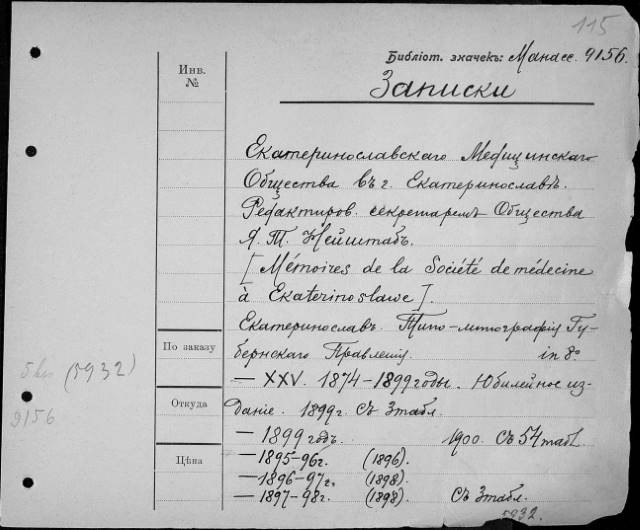 115
Библіот. значекъ: Манасс. 9156.
Инв.
№
Записки
Екатеринославскаго Медицинскаго
Общества въ г. Екатеринославѣ.
Редактиров. секретаремъ Общества
Я. Т. Нейштабъ.
[Mémoires de la Société de médecine
à Ekaterinoslawe].
Екатеринославъ. Типо-литографія Гу-
По заказу
бернскаго Правленія. in 8°
(5932)
— XXV. 1874–1899 годы. Юбилейное из-
Откуда
даніе. 1899 г. Съ 3 табл.
9156
— 1899 годъ. 1900. Съ 54 табл.
Цѣна
— 1895–96 г. (1896).
— 1896–97 г. (1898).
— 1897–98 г. (1898). Съ 3 табл.
5932.